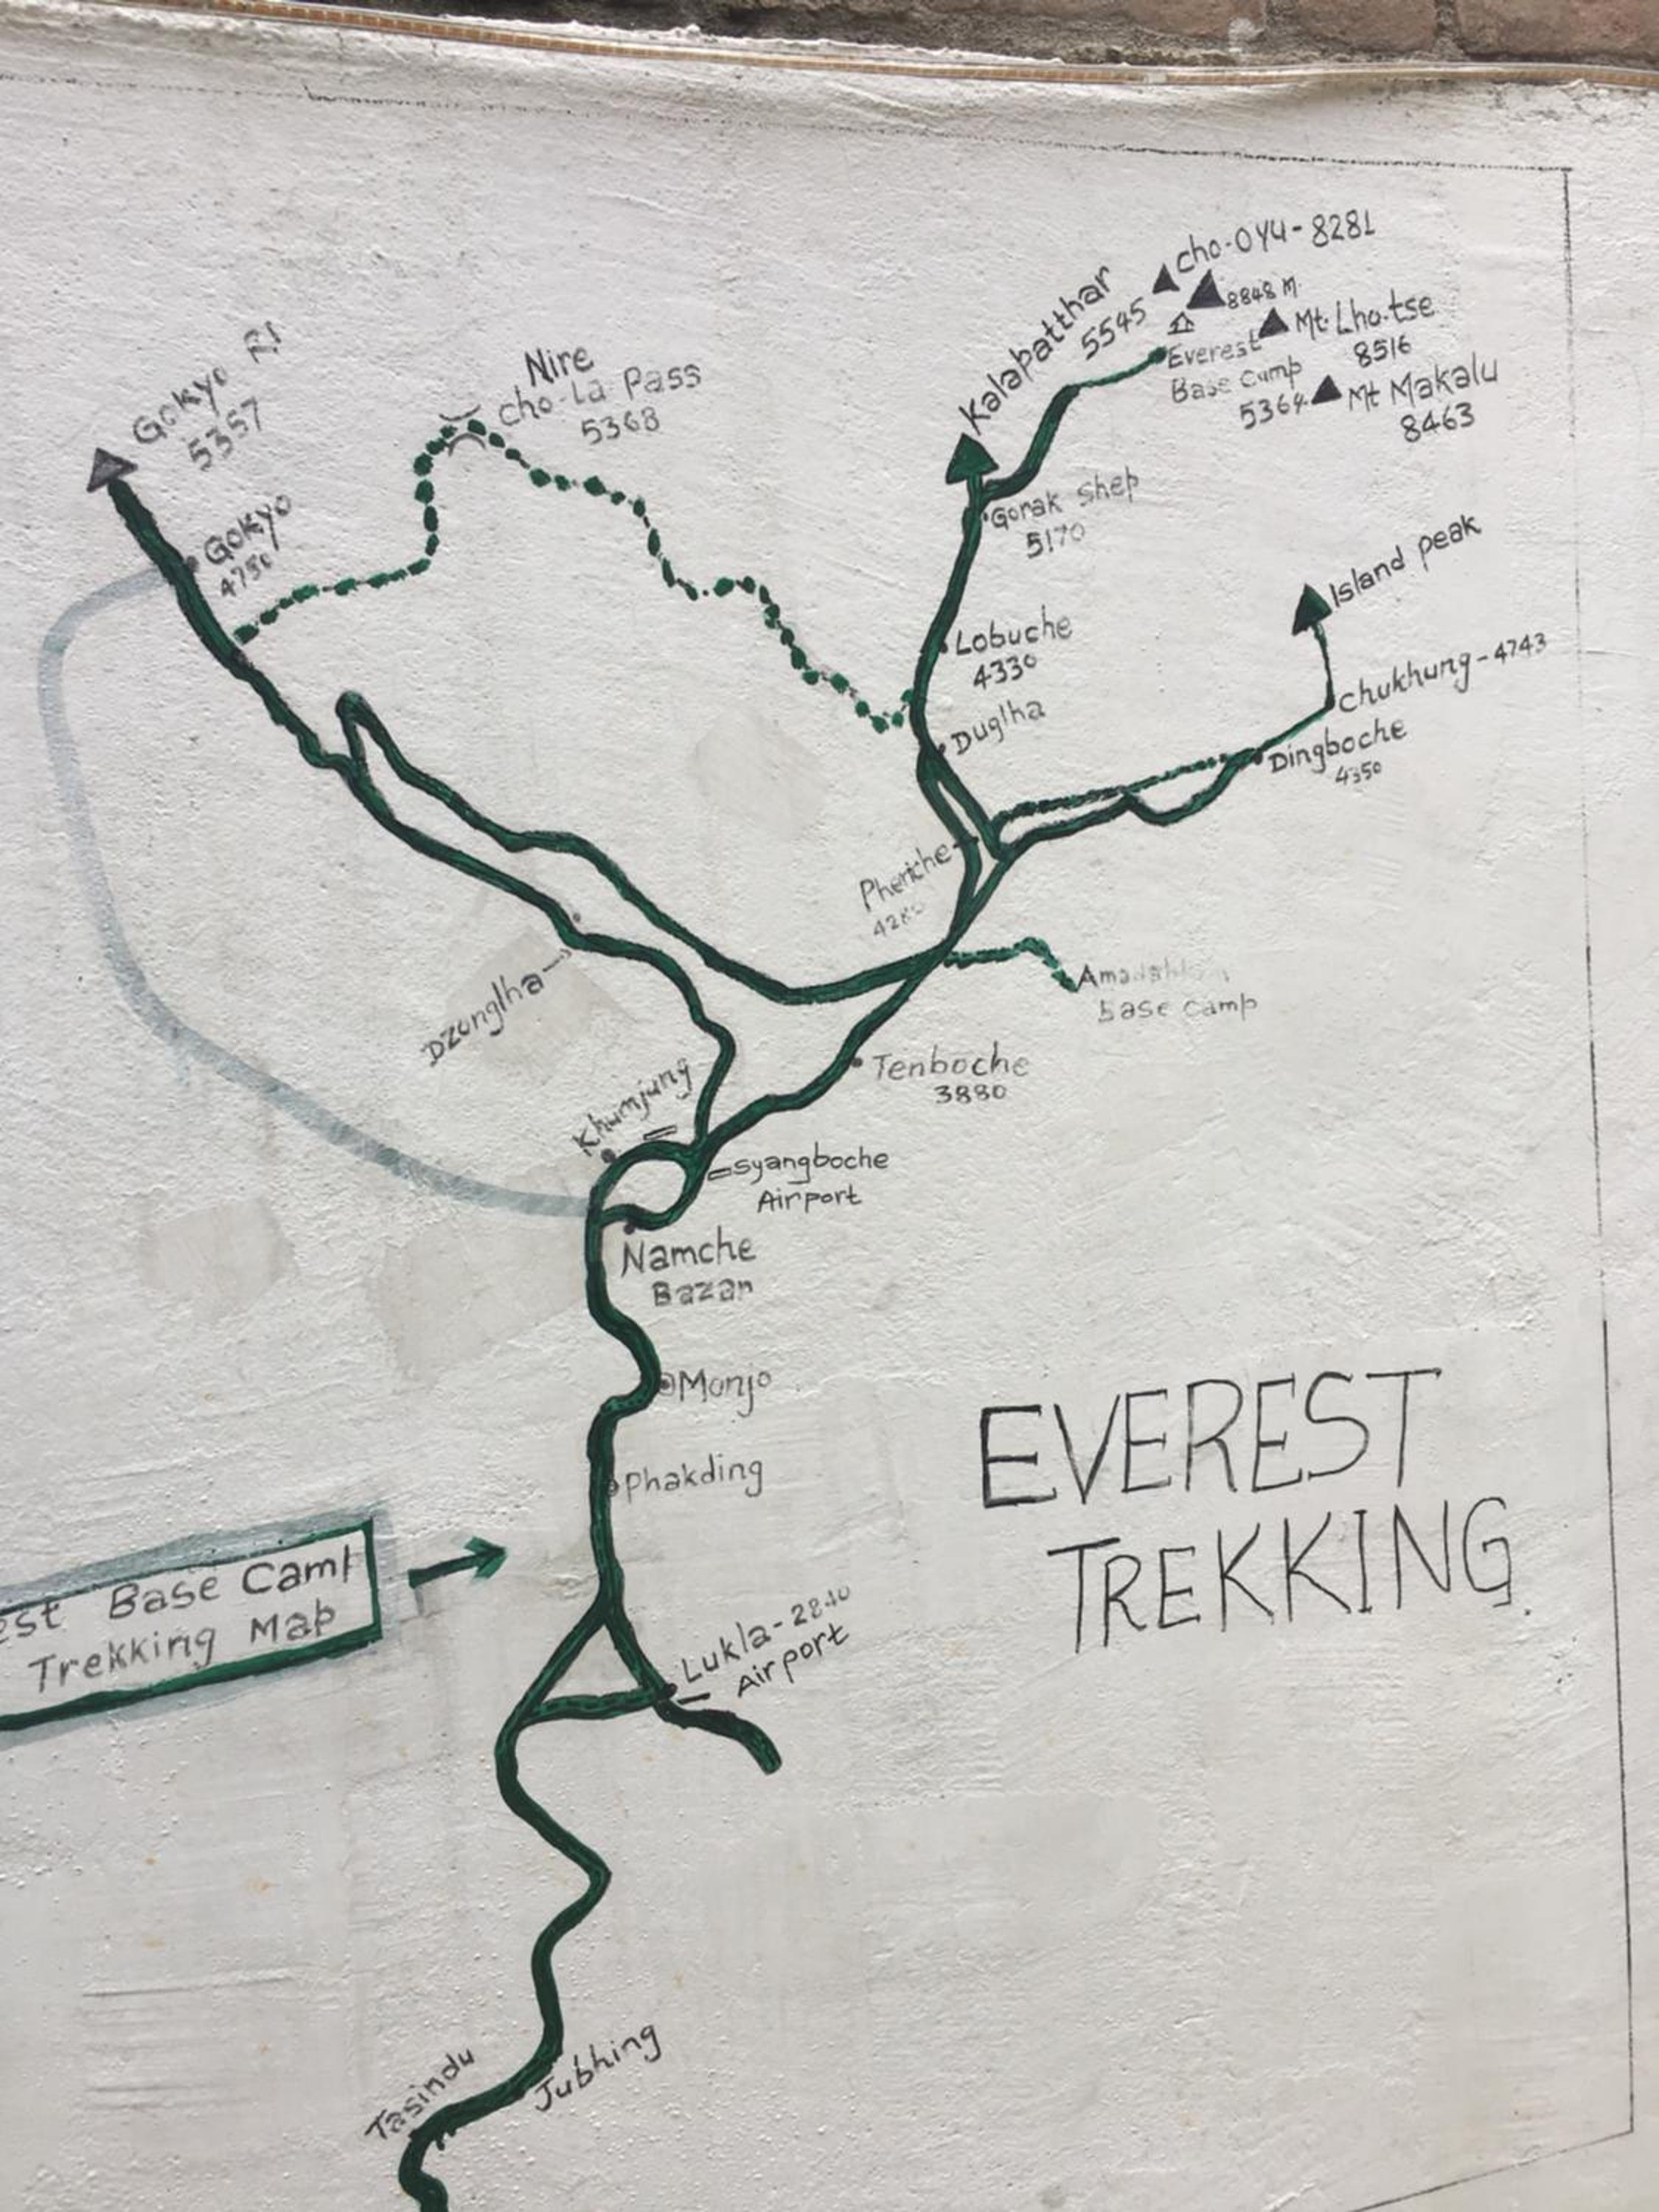 Cho-OYU-8281
8848 M
Kalapatthar
5545
Mt. Lhotse
8516
Everest
Base Camp
5364
Mt Makalu
8463
Gokyo RI
5357
Nire
Cho-La Pass
5368
Gokyo
4750
Gorak Shep
5170
Island peak
Lobuche
4330
Chukhung-4743
Duglha
Dingboche
4350
Pheriche
Base Camp
Dzonglha
Tenboche
3880
Khumjung
Syangboche
Airport
Namche
Bazar
Monjo
Phakding
EVEREST
TREKKING
Base Camp
Trekking Map
Lukla-2840
Airport
Jubhing
Tasindu